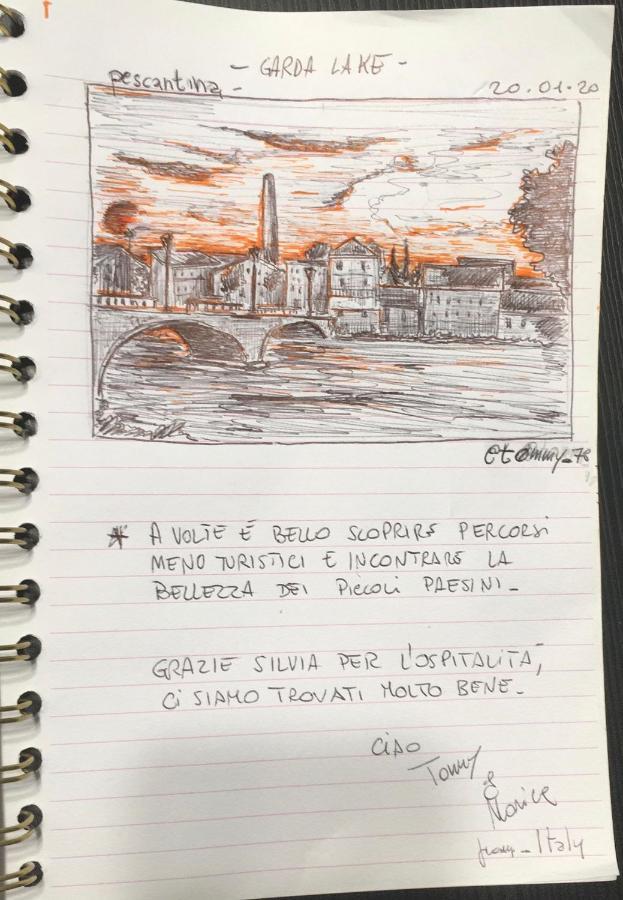 - GARDA LAKE -
pescantina - 20.01.20
etommy_78
* A VOLTE È BELLO SCOPRIRE PERCORSI
MENO TURISTICI E INCONTRARE LA
BELLEZZA DEI PICCOLI PAESINI -
GRAZIE SILVIA PER L'OSPITALITÀ,
CI SIAMO TROVATI MOLTO BENE -
CIAO
Tommy
&
from - Italy